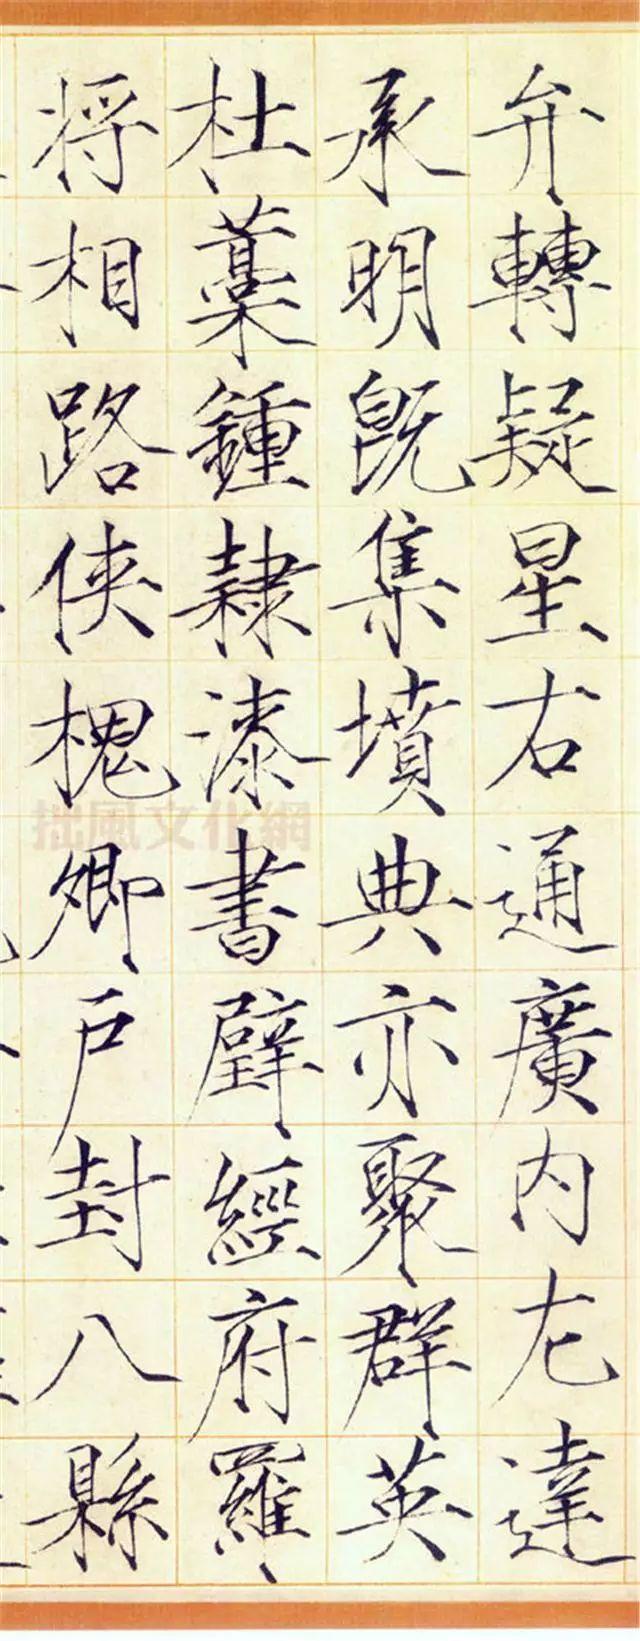 弁轉疑星右通廣内左達
承明既集墳典亦聚群英
杜藁鍾隸漆書壁經府羅
将相路俠槐卿戸封八縣
拙風文化網